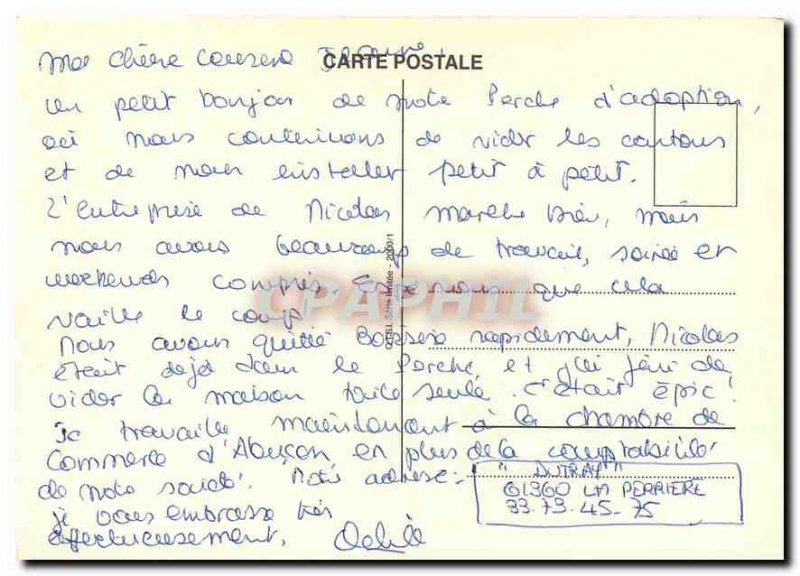 Ma chère cousine
CARTE POSTALE
un petit bonjour de notre Perche d'adoption,
où nous continuons de vider les cartons
et de nous installer petit à petit.
L'entreprise de Nicolas marche bien, mais
nous avons beaucoup de travail, soirée et
weekends compris. que cela
vaille le coup
Nous avons quitté rapidement, Nicolas
était déjà dans le Perche et j'ai fini de
vider la maison toute seule. c'était épic!
Je travaille maintenant à la chambre de
Commerce d'Alençon en plus de la comptabilité
de notre société. Notre adresse:
"DUTRAY"
61360 LA PERRIERE
33-73-45-75
je vous embrasse très
affectueusement,
CPAPHIL